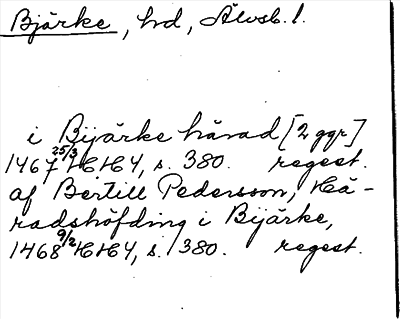 Bjärke, hrd, Älvsb. l.
i Bijärke härad [2 ggr]
1467 25/3 HH 4, s. 380. regest.
af Bertill Pedersson, Hä-
radshöfding i Bijärke,
1468 9/2 HH 4, s. 380. regest.